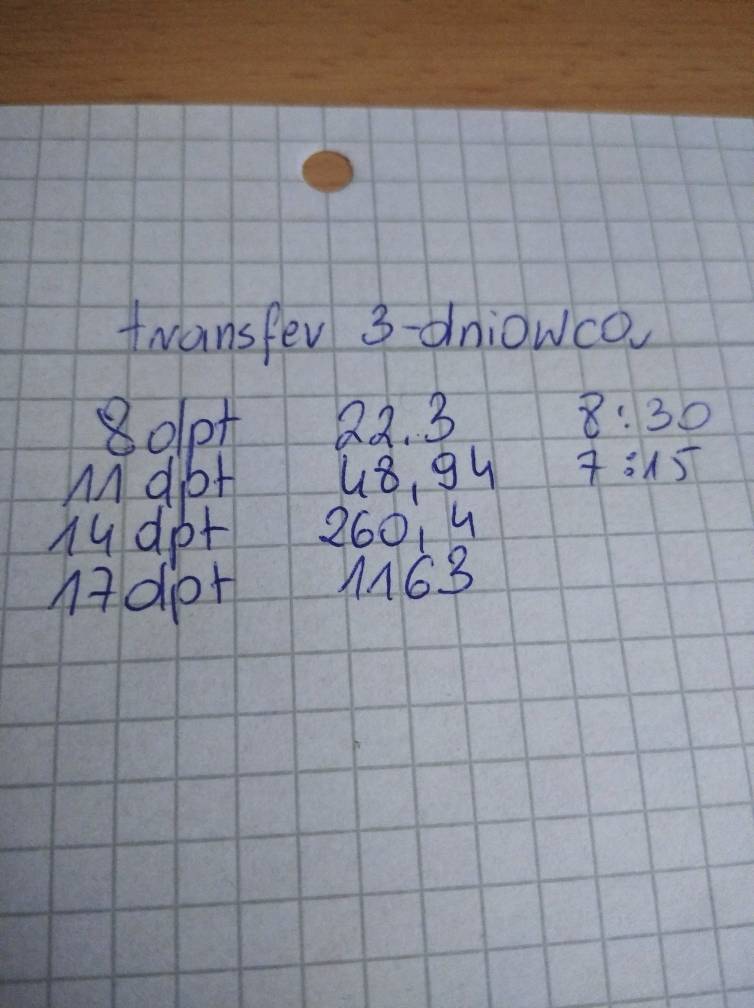 transfer 3-dniowca
8dpt 22.3 8:30
11dpt 48,94 7:15
14dpt 260,4
17dpt 1163